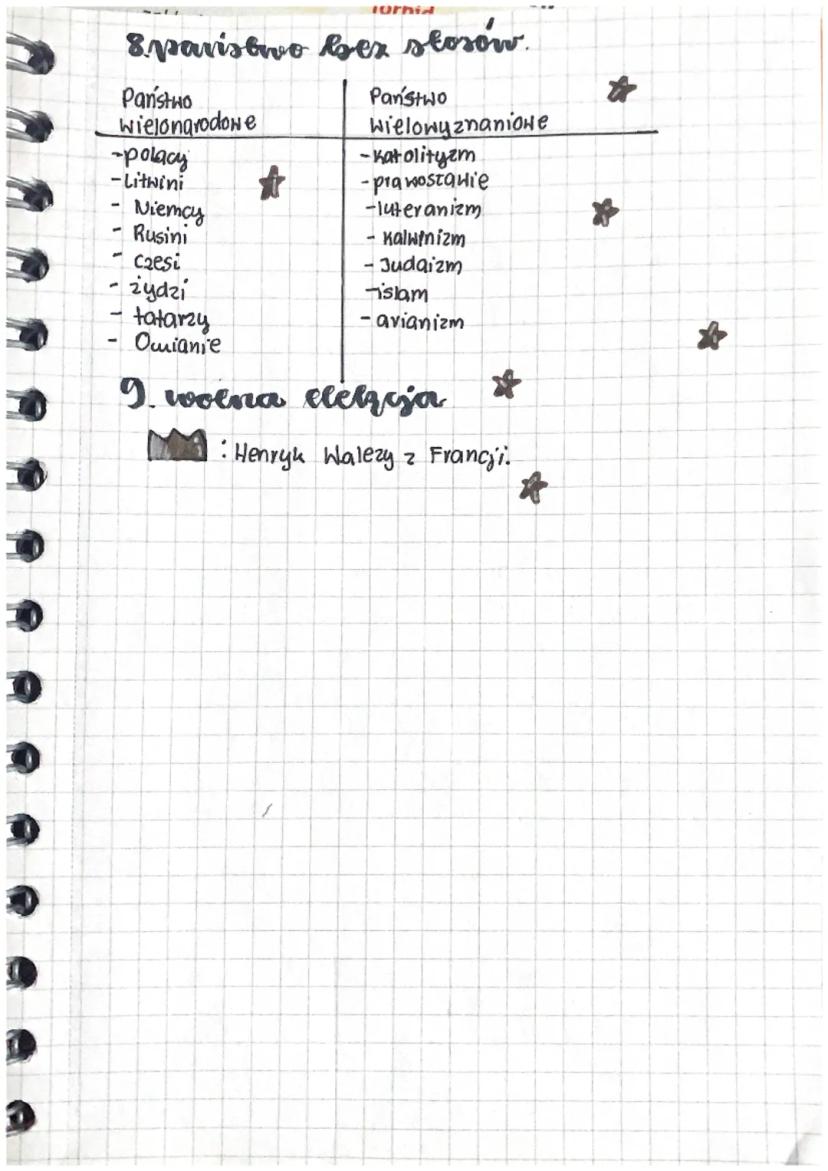 8. państwo bez stosów.
Państwo wielonarodowe
Państwo wielowyznaniowe
-polacy
-Litwini
- Niemcy
- Rusini
- czesi
- żydzi
- tatarzy
- Omianie
-katolityzm
-prawosławie
-luteranizm
- kalwinizm
- Judaizm
-islam
- arianizm
9. wolna elekcja
: Henryk Walezy z Francji.